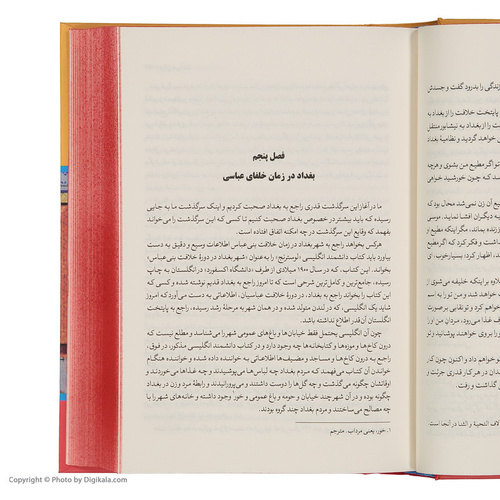 فصل پنجم
بغداد در زمان خلفای عباسی
ما در آغاز این سرگذشت قدری راجع به بغداد صحبت کردیم و اینک سرگذشت ما به جایی
رسیده که باید بیشتر در خصوص بغداد صحبت کنیم تا کسی که این سرگذشت را می‌خواند
بفهمد که وقایع این سرگذشت در چه امکنه اتفاق افتاده است.
هرکس بخواهد راجع به شهر بغداد در زمان خلافت بنی‌عباس اطلاعات وسیع و دقیق به دست
بیاورد باید کتاب دانشمند انگلیسی «لوسترنج» را به‌عنوان «شهر بغداد در دورهٔ خلافت بنی‌عباس»
بخواند. این کتاب، که در سال ۱۹۰۰ میلادی از طرف «دانشگاه اکسفورد» در انگلستان به چاپ
رسیده، جامع‌ترین و کامل‌ترین شرحی است که تا امروز راجع به بغداد قدیم نوشته شده و کسی که
این کتاب را بخواند راجع به بغداد، در دورهٔ خلافت عباسیان، اطلاعاتی به دست می‌آورد که امروز
شاید یک انگلیسی، که در لندن متولد شده و در همان شهر به مرحلهٔ رشد رسیده، راجع به پایتخت
انگلستان آن قدر اطلاع نداشته باشد.
چون آن انگلیسی یحتمل فقط خیابان‌ها و باغ‌های عمومی شهر را می‌شناسد و مطلع نیست که
درون کاخ‌ها و موزه‌ها و کتابخانه‌ها چه وجود دارد و در کتاب دانشمند انگلیسی مذکور، در فوق،
راجع به درون کاخ‌ها و مساجد و مضیف‌ها اطلاعاتی به خواننده داده شده و خواننده هنگام
خواندن آن کتاب می‌فهمد که مردم بغداد چه لباس‌ها می‌پوشیدند و چه غذاها می‌خوردند و
اوقاتشان چگونه می‌گذشت و چه گل‌ها را دوست داشتند و می‌پرورانیدند و رابطهٔ مرد و زن در بغداد
چگونه بوده و در آن شهر چند خیابان و حومه و باغ عمومی و خور وجود داشته و خانه‌های شهر را با
چه مصالح می‌ساختند و مردم بغداد چند گروه بودند.
۱. خور، یعنی مرداب. مترجم
زندگی را بدرود گفت و جسدش
پایتخت خلافت را از بغداد به
را از بغداد به نیشابور منتقل
خواهد گردید و نظامیهٔ بغداد
تو اگر مطیع من بشوی و هرچه
شد که چون خورشید خواهی
آن زن نمی‌شد محال بود که
به دیگران افشا نماید. موسی
زنده بماند، مگر اینکه مطیع او
داشت و فکر کرد که اگر مطیع
د، اظهار کرد: بسیار خوب، ای
علاوه بر اینکه خلیفه می‌شوی از
خواهد شد و من تو را به اسم
خواهم کرد و تو نقابی بر صورت
غذا می‌رود، مردان من او را
را بر روی خواهند پوشانید و تو
خواهم داد و اکنون چون که
در هر کار قدری جرئت و
گذاشت و رفت.
Copyright © Photo by Digikala.com